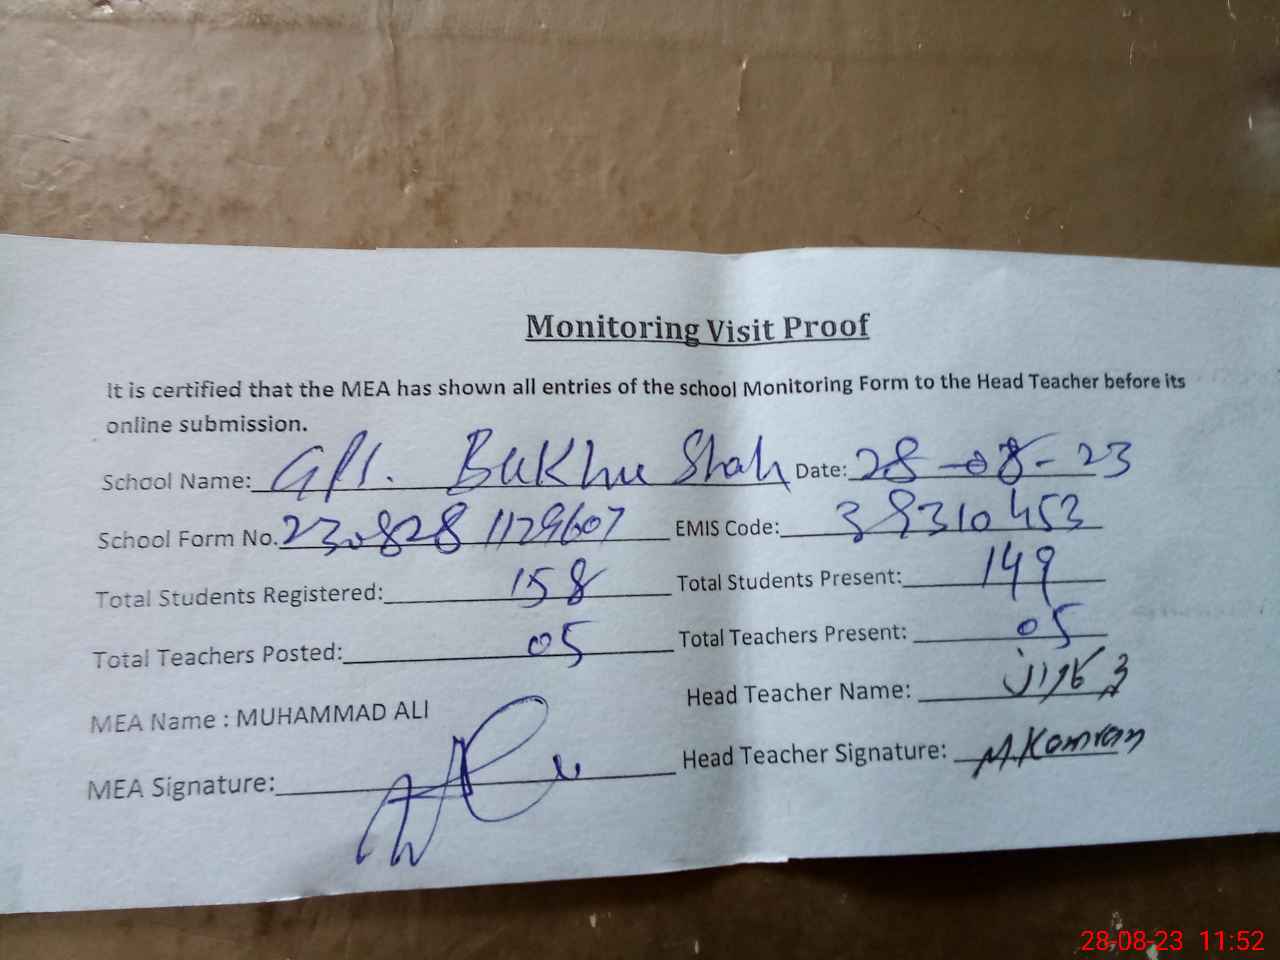 Monitoring Visit Proof
It is certified that the MEA has shown all entries of the school Monitoring Form to the Head Teacher before its
online submission.
School Name: GPS. Bukhu Shah Date: 28-08-23
School Form No. 230828 1129607 EMIS Code: 38310453
Total Students Registered: 158 Total Students Present: 149
Total Teachers Posted: 05 Total Teachers Present: 05
MEA Name : MUHAMMAD ALI Head Teacher Name: محمد کامران
MEA Signature: Head Teacher Signature: M.Kamran
28-08-23 11:52